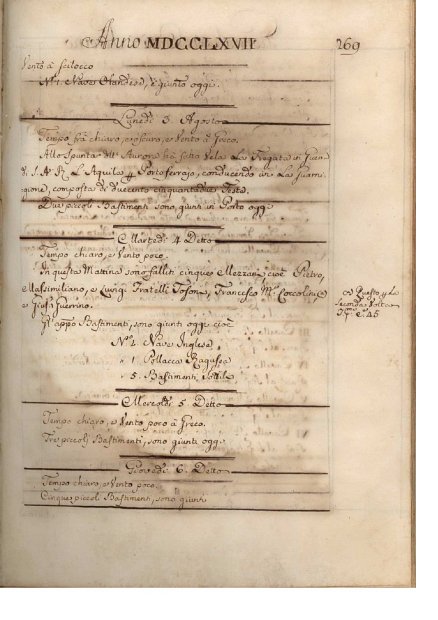 Anno MDCCLXVII
269
Vento à scilocco
N.º 1. Nave Olandese, è giunto oggi.
Lunedì 3. Agosto
Tempo frà chiaro, e oscuro, e Vento à Greco.
Allo Spuntar dell' Aurora hà fatto Vela La Fregata in Guer
di S. M. R. L'Aquila Portoferrajo, conducendo in La Guarni
gione, composta di duecento cinquantadue Teste.
Due piccoli Bastimenti sono giunti in Porto oggi
Martedì 4 Detto
Tempo chiaro, e Vento poco
In questa Mattina son falliti cinque Mezzani cioè Pietro,
Massimiliano, e Luigi Fratelli Tosoni, Francesco M.ª Coccolini,
e Guerrino.
Gl' appo Bastimenti, sono giunti oggi cioè
N.º 1. Nave Inglese
" 1. Pollacca Ragusea
" 5. Bastimenti Sottili
è Questo p La
Seconda Volta
45
Mercoledì 5 Detto
Tempo chiaro, e Vento poco à Greco.
Tre piccoli Bastimenti, sono giunti oggi
Giovedì 6. Detto
Tempo chiaro, e Vento poco.
Cinque piccoli Bastimenti, sono giunti